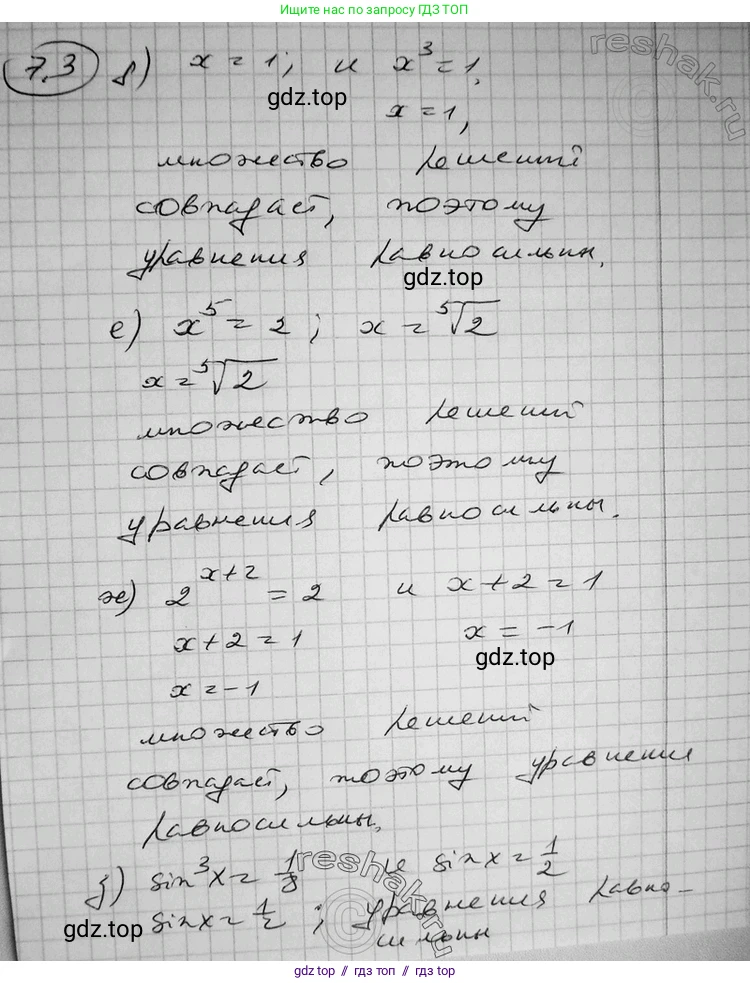 Ищите нас по запросу ГДЗ ТОП
7.3 д) x = 1; и x³ = 1,
gdz.top
x = 1,
reshak.ru
множество решений
совпадает, поэтому
уравнения равносильны.
gdz.top
е) x⁵ = 2; x = ⁵√2
x = ⁵√2
множество решений
совпадает, поэтому
уравнения равносильны.
ж) 2ˣ⁺² = 2 и x + 2 = 1
x + 2 = 1 x = -1
gdz.top
x = -1
множество решений
совпадает, поэтому уравнения
равносильны.
reshak.ru
з) sin³x = 1/8 и sin x = 1/2
sin x = 1/2; уравнения равно-
gdz.top
сильны
gdz.top // гдз топ // gdz.top